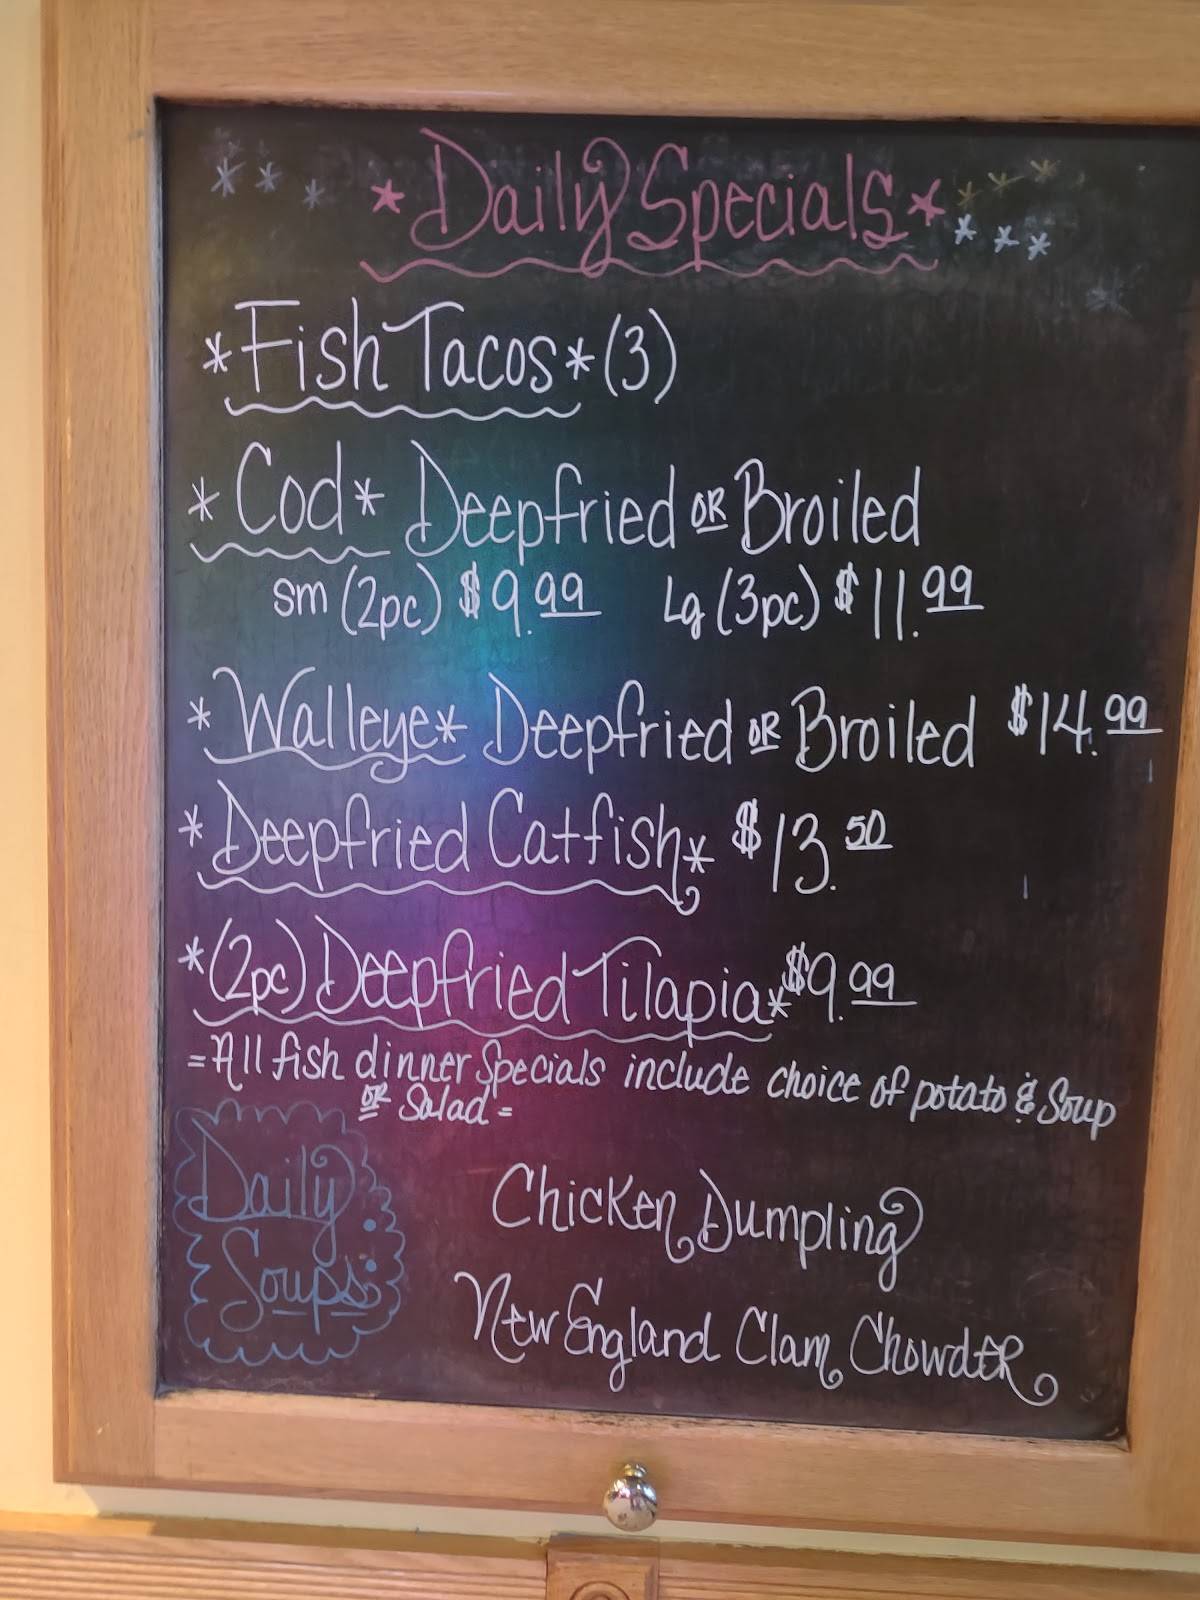 *Daily Specials*
*Fish Tacos* (3)
*Cod* Deepfried OR Broiled
sm (2pc) $9.99 Lg (3pc) $11.99
*Walleye* Deepfried OR Broiled $14.99
*Deepfried Catfish* $13.50
*(2pc) Deepfried Tilapia* $9.99
=All fish dinner Specials include choice of potato & Soup
OR Salad=
Daily
Soups:
Chicken Dumpling
New England Clam Chowder